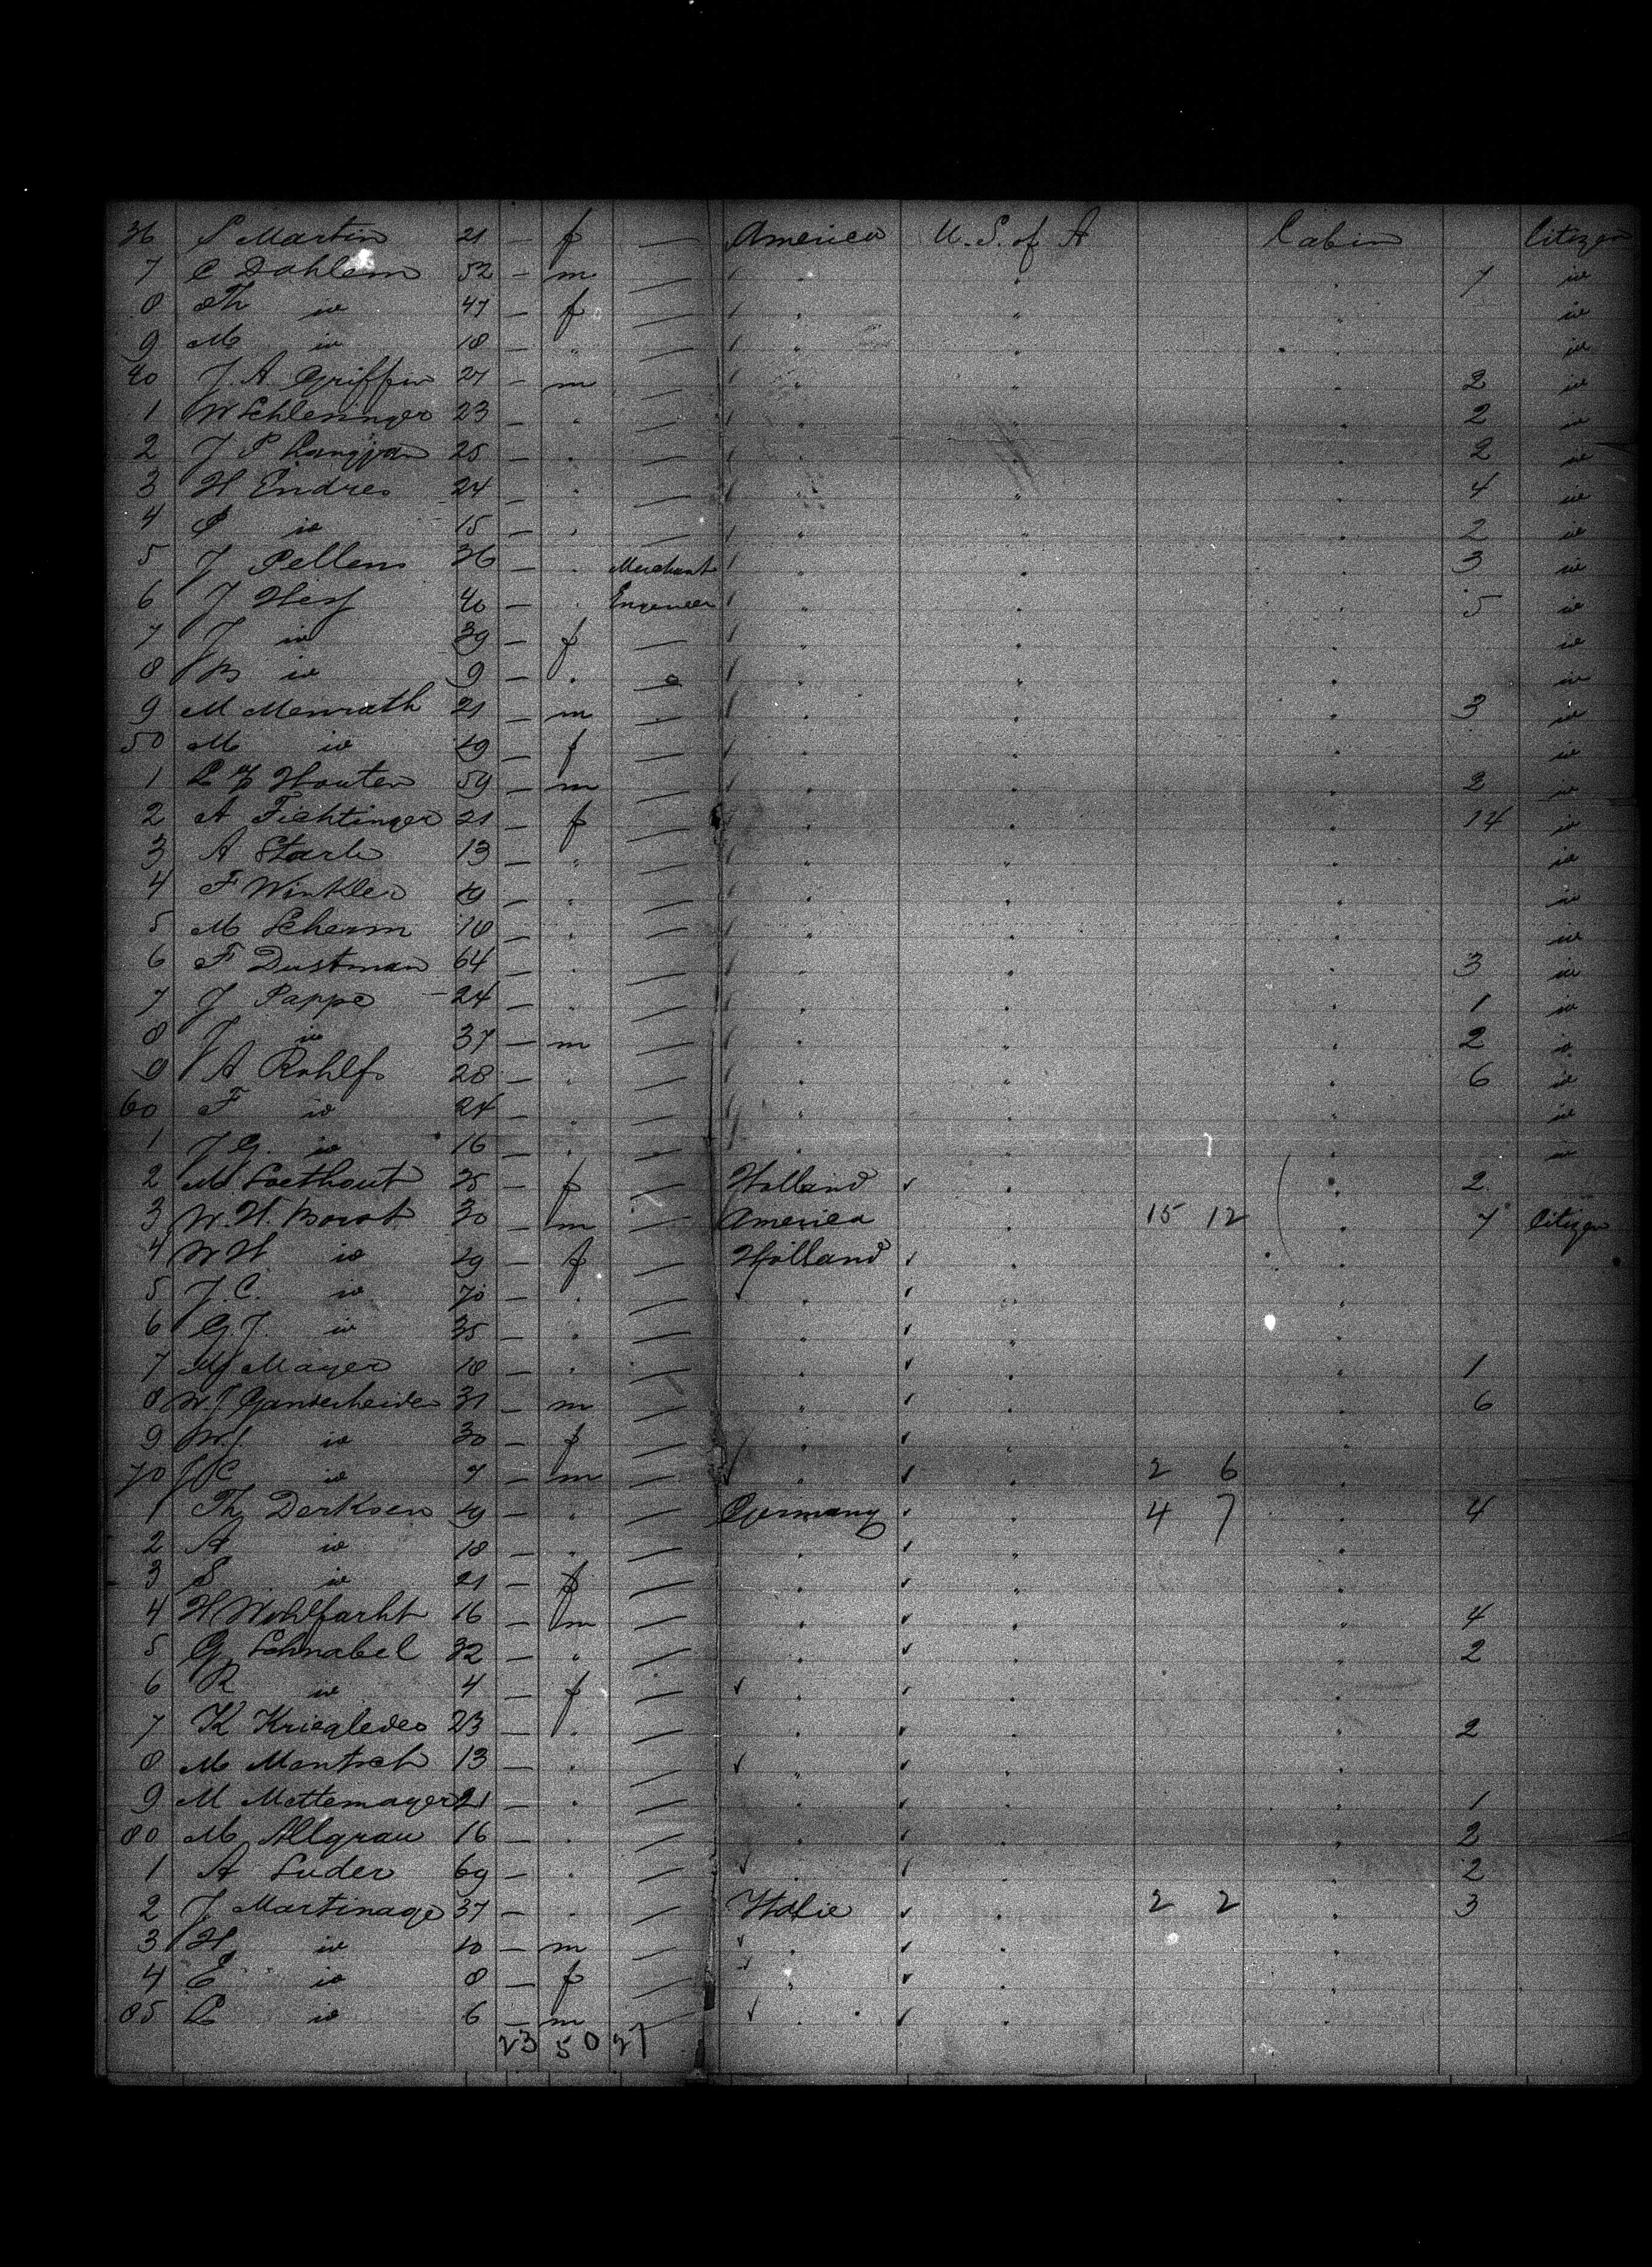 36 S Martin 21 — f — America U. S. of A Cabin Citizen
7 C Dahlem 52 — m — " " " 7 id
8 Th id 47 — f — " " " id
9 M id 18 — " — " " " id
40 J. A. Griffin 27 — m — " " " 2 id
1 W Schlesinger 23 — " — " " " 2 id
2 J P 25 — " — " " " 2 id
3 H Endres 24 — " — " " " 4 id
4 P id 15 — " — " " " 2 id
5 J Pellens 36 — " Merchant " " " 3 id
6 J Hess 40 — " Engeneer " " " 5 id
7 J id 39 — f — " " " id
8 B id 9 — " — " " " id
9 M Menrath 21 — m — " " " 3 id
50 M id 19 — f — " " " id
1 L Z Houten 59 — m — " " " 2 id
2 A Fichtinger 21 — f — " " " 14 id
3 A Stark 13 — " — " " " id
4 F Winkler 19 — " — " " " id
5 M Scherm 18 — " — " " " id
6 F Dustman 64 — " — " " " 3 id
7 J Pappe 24 — " — " " " 1 id
8 J id 37 — m — " " " 2 id
9 A Rohlfs 28 — " — " " " 6 id
60 F id 24 — " — " " " id
1 J G. id 16 — " — " " " id
2 M. Soethout 25 — f — Holland " " 2
3 W. H. Borst 30 — m — America " 15 12 " 7 Citizen
4 W H. id 19 — f — Holland " "
5 J. C. id 70 — " — " " "
6 G J. id 35 — " — " " "
7 M Mayer 18 — " — " " " 1
8 W. J Ganderheiden 31 — m — " " " 6
9 W. J. id 30 — f — " " "
70 J C id 7 — m — " " 2 6 "
1 Th Derksen 19 — " — Germany " 4 7 " 4
2 A id 18 — " — " " "
3 S id 21 — f — " " "
4 H Wohlfarht 16 — m — " " " 4
5 G Schnabel 32 — " — " " " 2
6 R id 4 — f — " " "
7 K Kriegleder 23 — " — " " " 2
8 M Mentsch 13 — " — " " "
9 M Mettemayer 21 — " — " " " 1
80 M Allgrau 16 — " — " " " 2
1 A Luder 69 — " — " " " 2
2 J Martinage 37 — " — Italie " 2 2 " 3
3 H id 10 — m — " " "
4 E id 8 — f — " " "
85 L id 6 — m — " " "
23 50 27